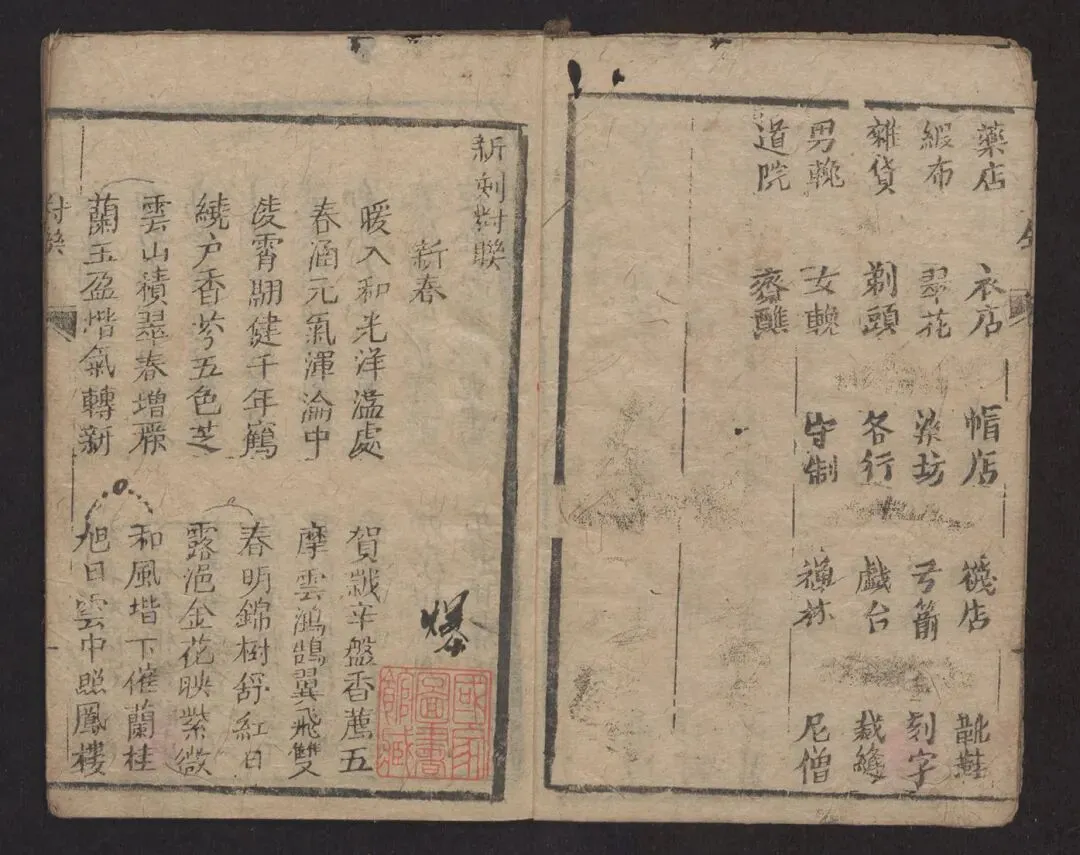 藥店 衣店 帽店 襪店 靴鞋
緞布 翠花 染坊 弓箭 刻字
雜貨 剃頭 各行 戲台 裁縫
男輓 女輓 守制 禪林 尼僧
道院 齋醮
新刻对聯
新春
爆
國家圖書館藏
暖入和光洋溢處 賀 辛盤香薦五
春涵元氣渾淪中 摩雲鴻鵠翼飛雙
凌霄翮健千年鶴 春明錦樹舒紅日
繞户香芬五色芝 露浥金花映紫微
雲山積翠春增 和風堦下催蘭桂
蘭玉盈堦氣轉新 旭日雲中照鳳樓